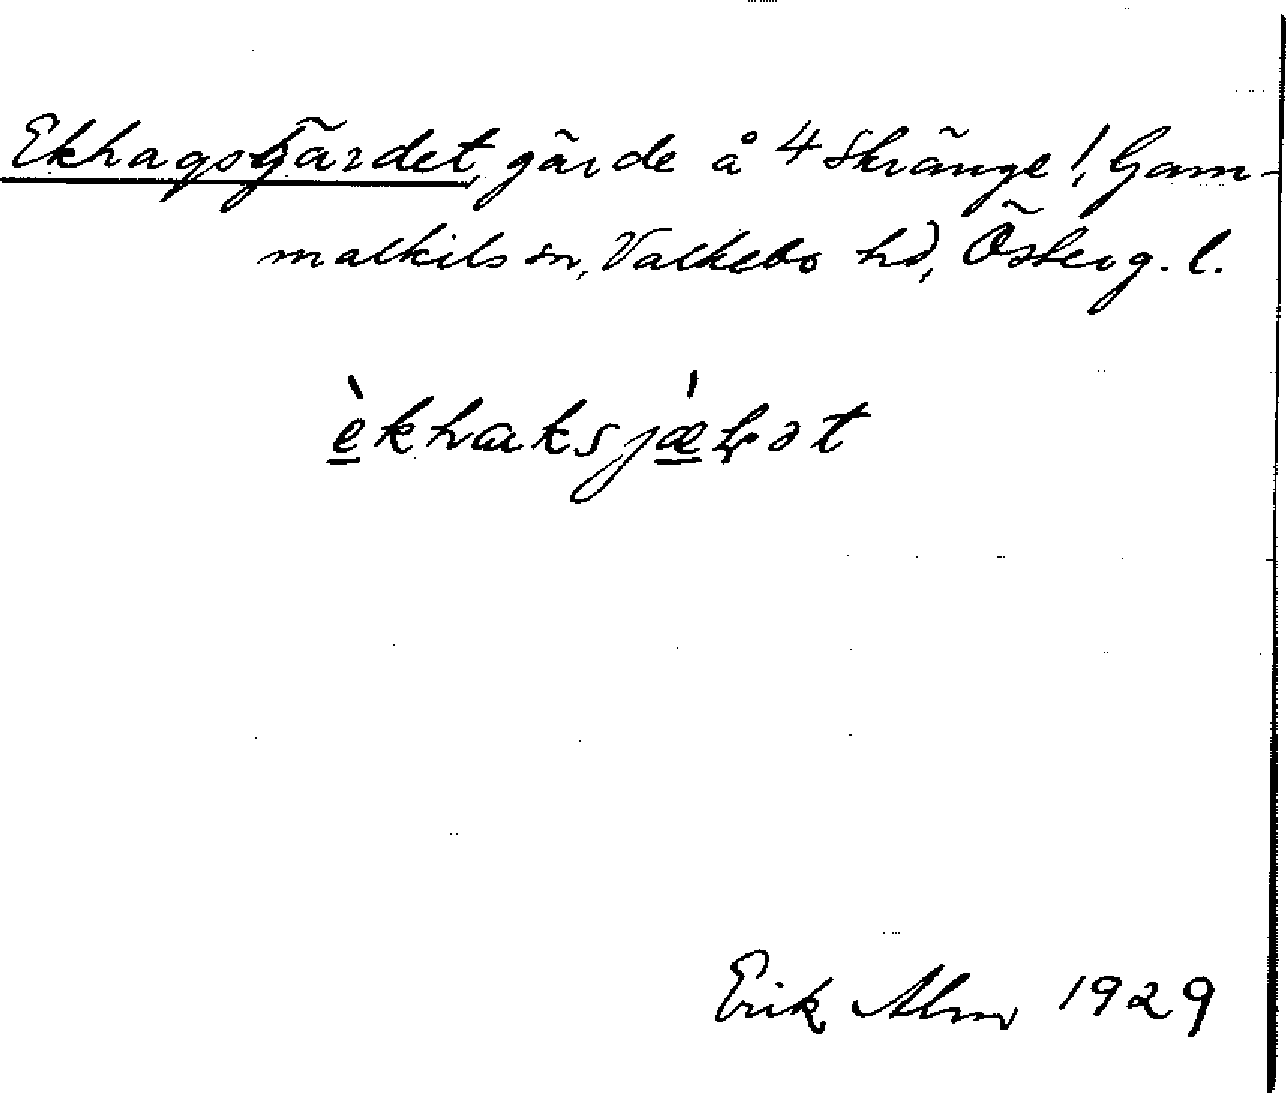 Ekhagsgärdet, gärde å 4 Skränge!, Gam-
malkils sn, Valkebo hd, Österg. l.
èkhaksjæ̲ət
Erik Alm 1929